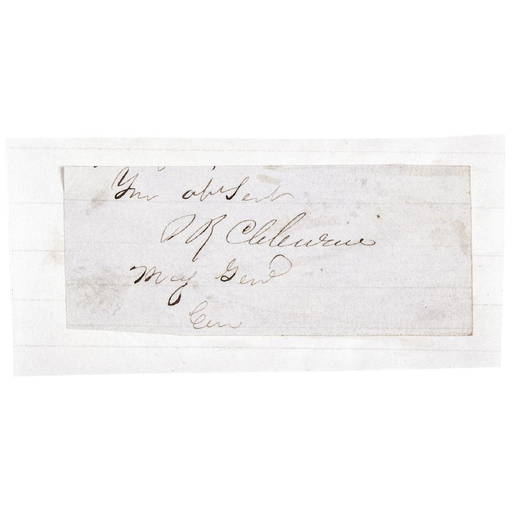 Your obt Servt
P R Cleburne
Maj Genl